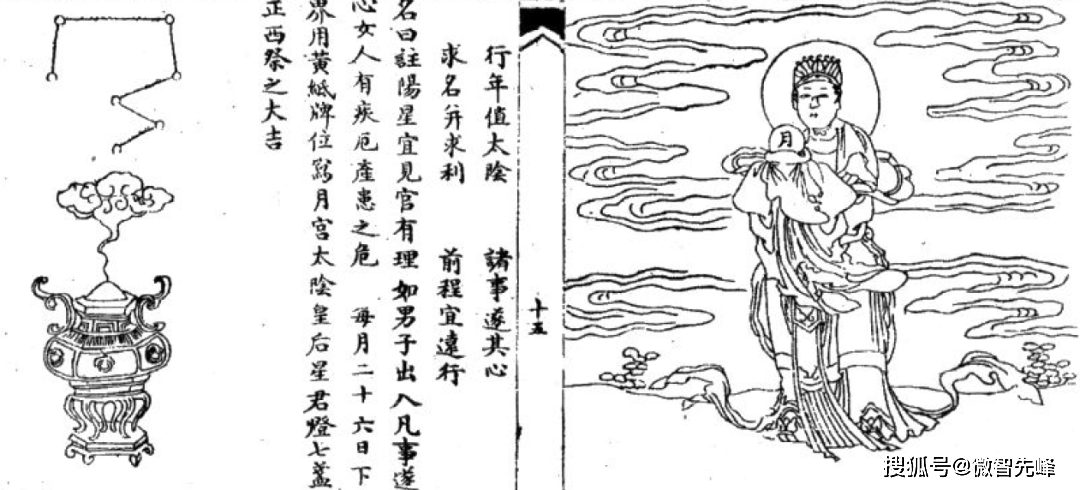 月
十五
行年值太陰　諸事遂其心
求名并求利　前程宜遠行
名曰註陽星宜見官有理如男子出入凡事遂
心女人有疾厄產患之危　每月二十六日下
界用黃紙牌位寫月宮太陰皇后星君燈七盞
正西祭之大吉
搜狐号@微智先峰